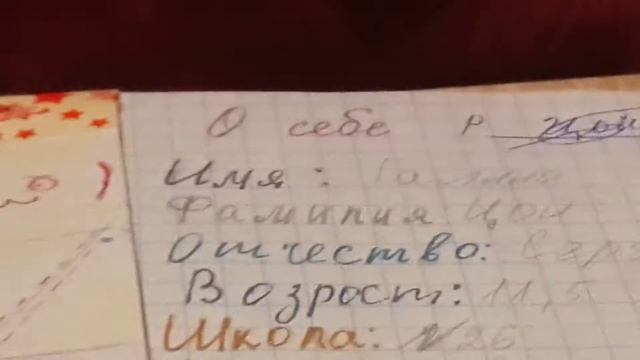 О себе Р
Имя:
Фамилия Цои
Отчество:
Возрост: 11,5
Школа: №26